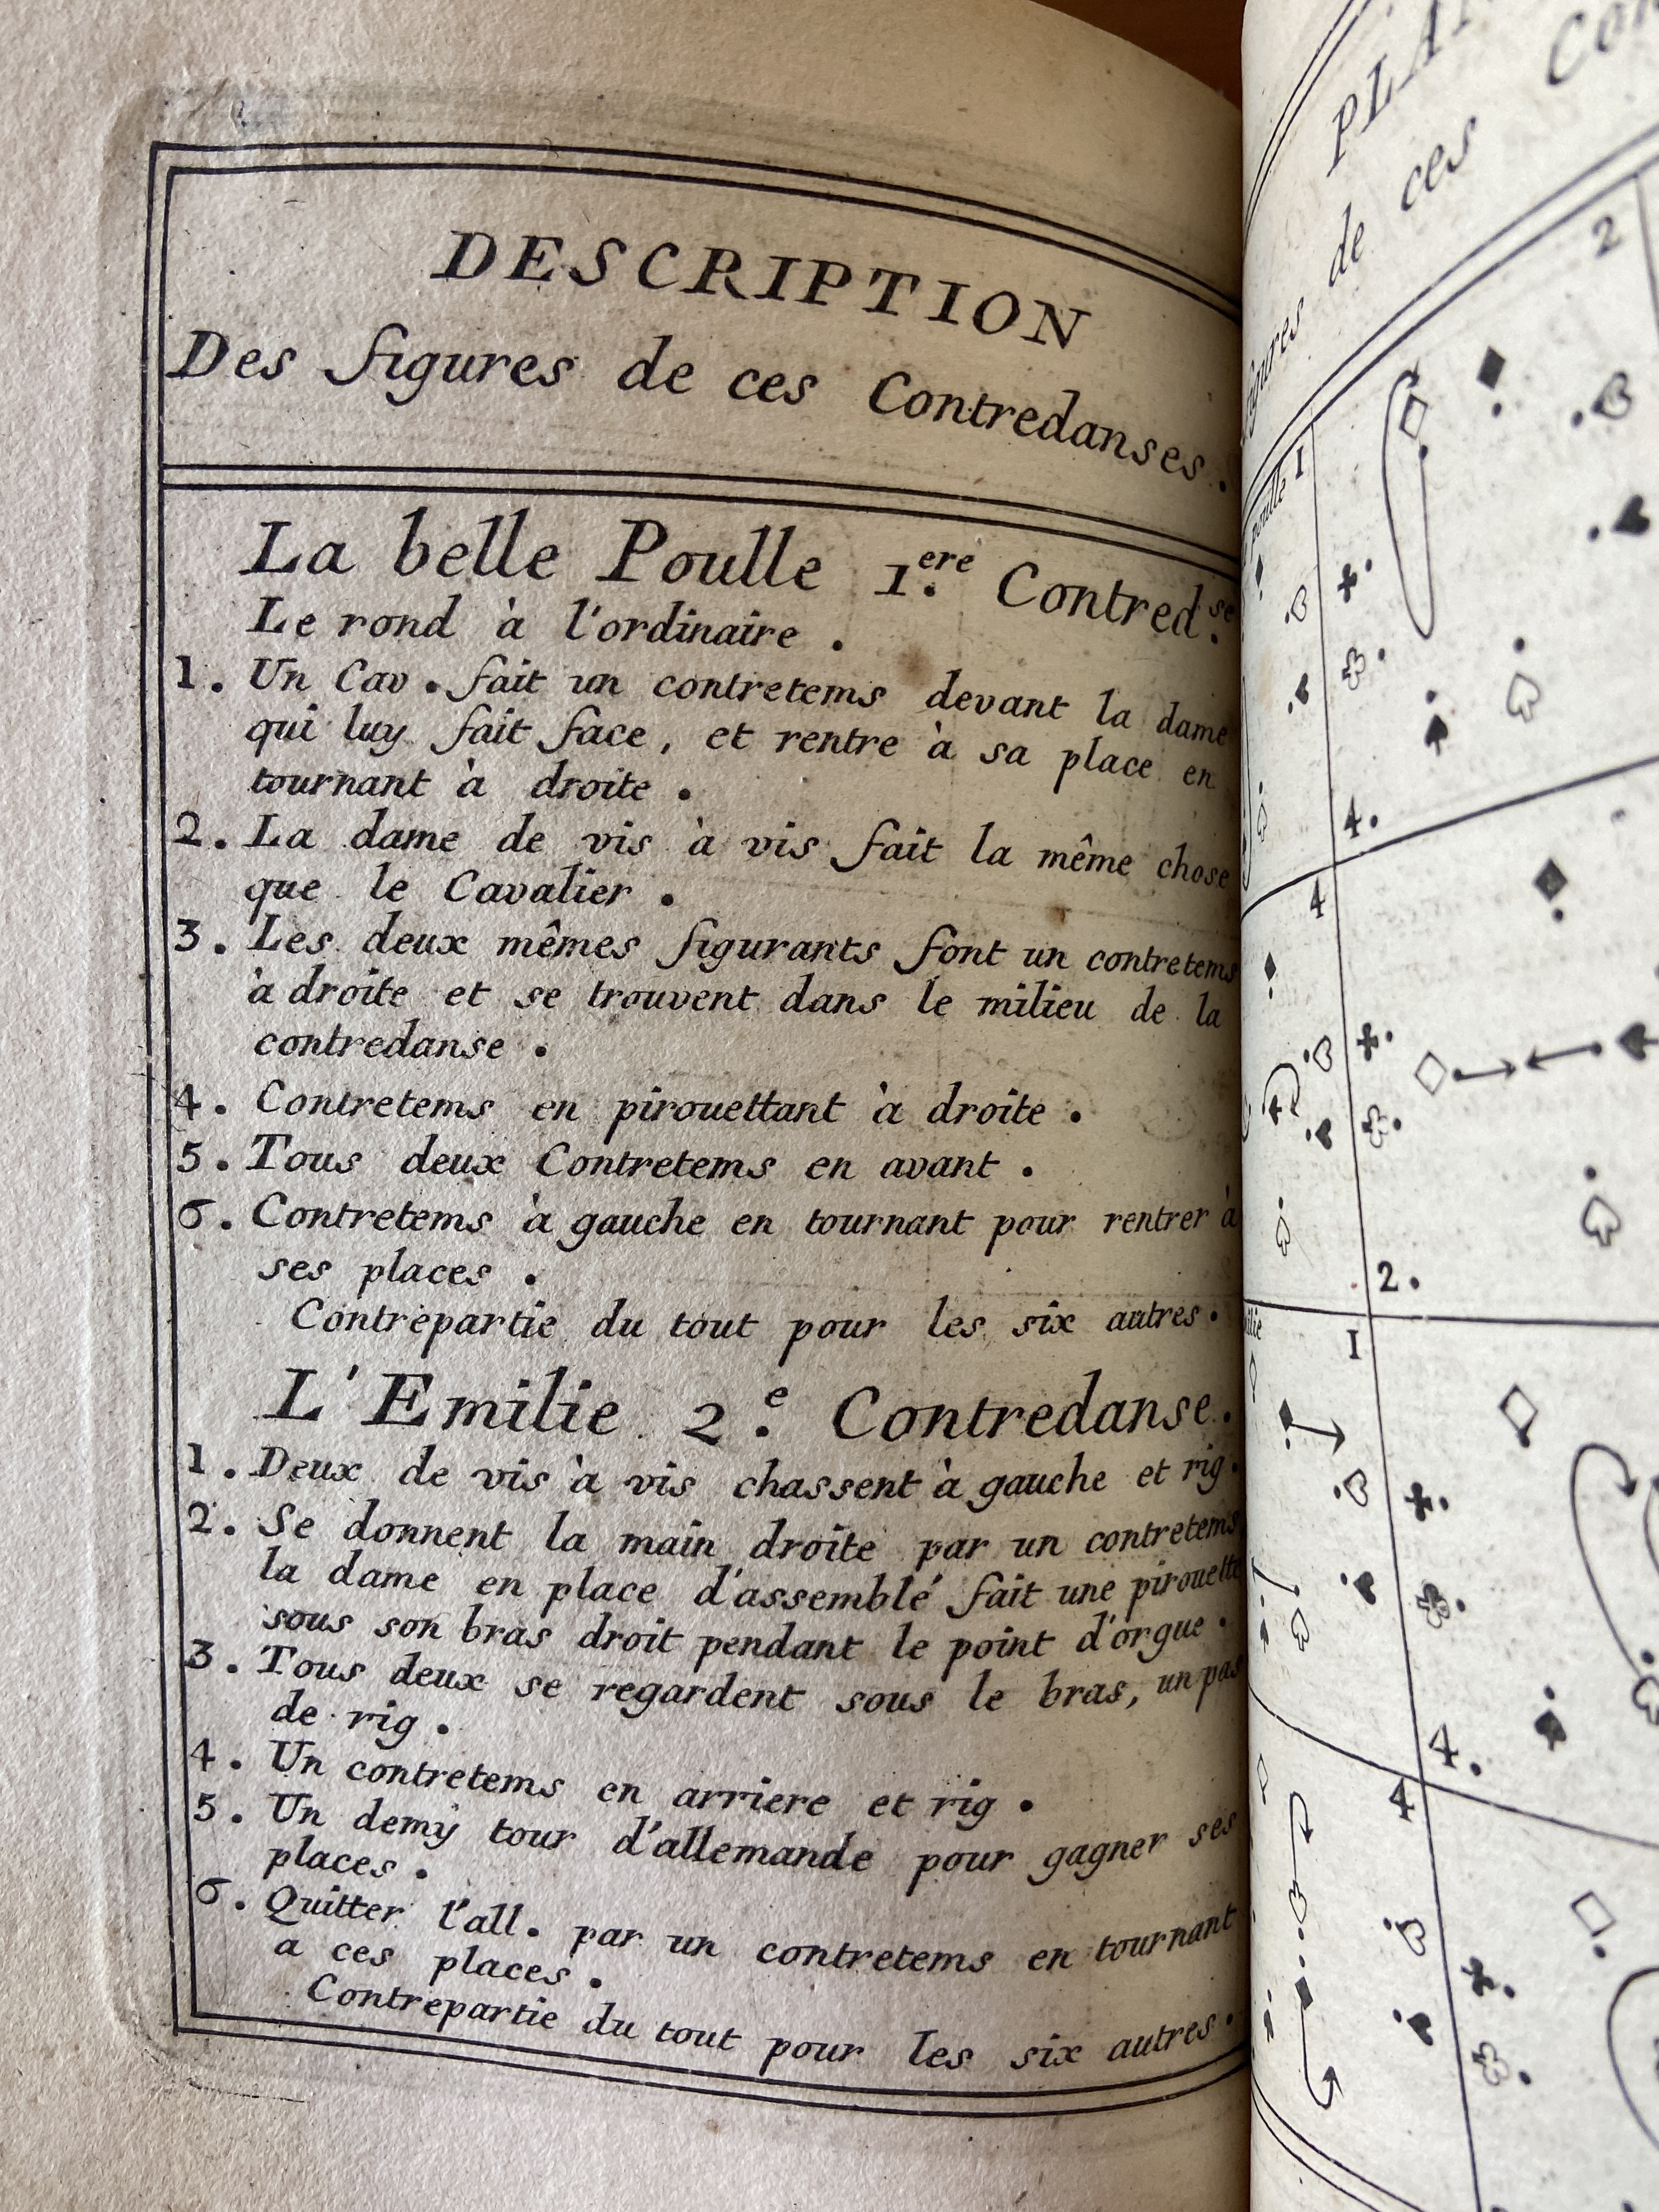 DESCRIPTION
Des figures de ces Contredanses.
La belle Poulle 1.ere Contred.se
Le rond à l'ordinaire.
1. Un Cav. fait un contretems devant la dame
qui luy fait face, et rentre à sa place en
tournant à droite.
2. La dame de vis à vis fait la même chose
que le Cavalier.
3. Les deux mêmes figurants font un contretems
à droite et se trouvent dans le milieu de la
contredanse.
4. Contretems en pirouettant à droite.
5. Tous deux Contretems en avant.
6. Contretems à gauche en tournant pour rentrer à
ses places.
Contrepartie du tout pour les six autres.
L'Emilie 2.e Contredanse.
1. Deux de vis à vis chassent à gauche et rig.
2. Se donnent la main droite par un contretems
la dame en place d'assemblé fait une pirouette
sous son bras droit pendant le point d'orgue.
3. Tous deux se regardent sous le bras, un pas
de rig.
4. Un contretems en arriere et rig.
5. Un demy tour d'allemande pour gagner ses
places.
6. Quitter l'all. par un contretems en tournant
a ces places.
Contrepartie du tout pour les six autres.
de ces
poulle 1
2
4.
4
2.
1
4.
4